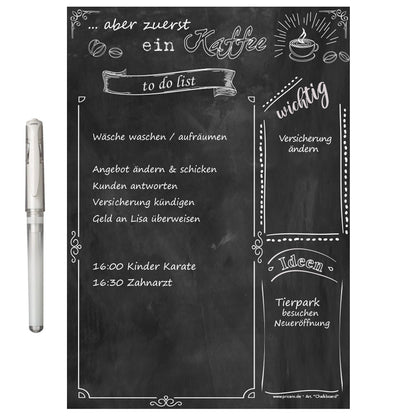 ... aber zuerst
ein Kaffee
to do list
Wäsche waschen / aufräumen
Angebot ändern & schicken
Kunden antworten
Versicherung kündigen
Geld an Lisa überweisen
16:00 Kinder Karate
16:30 Zahnarzt
wichtig
Versicherung
ändern
Ideen
Tierpark
besuchen
Neueröffnung
www.pricaro.de - Art. "Chalkboard"